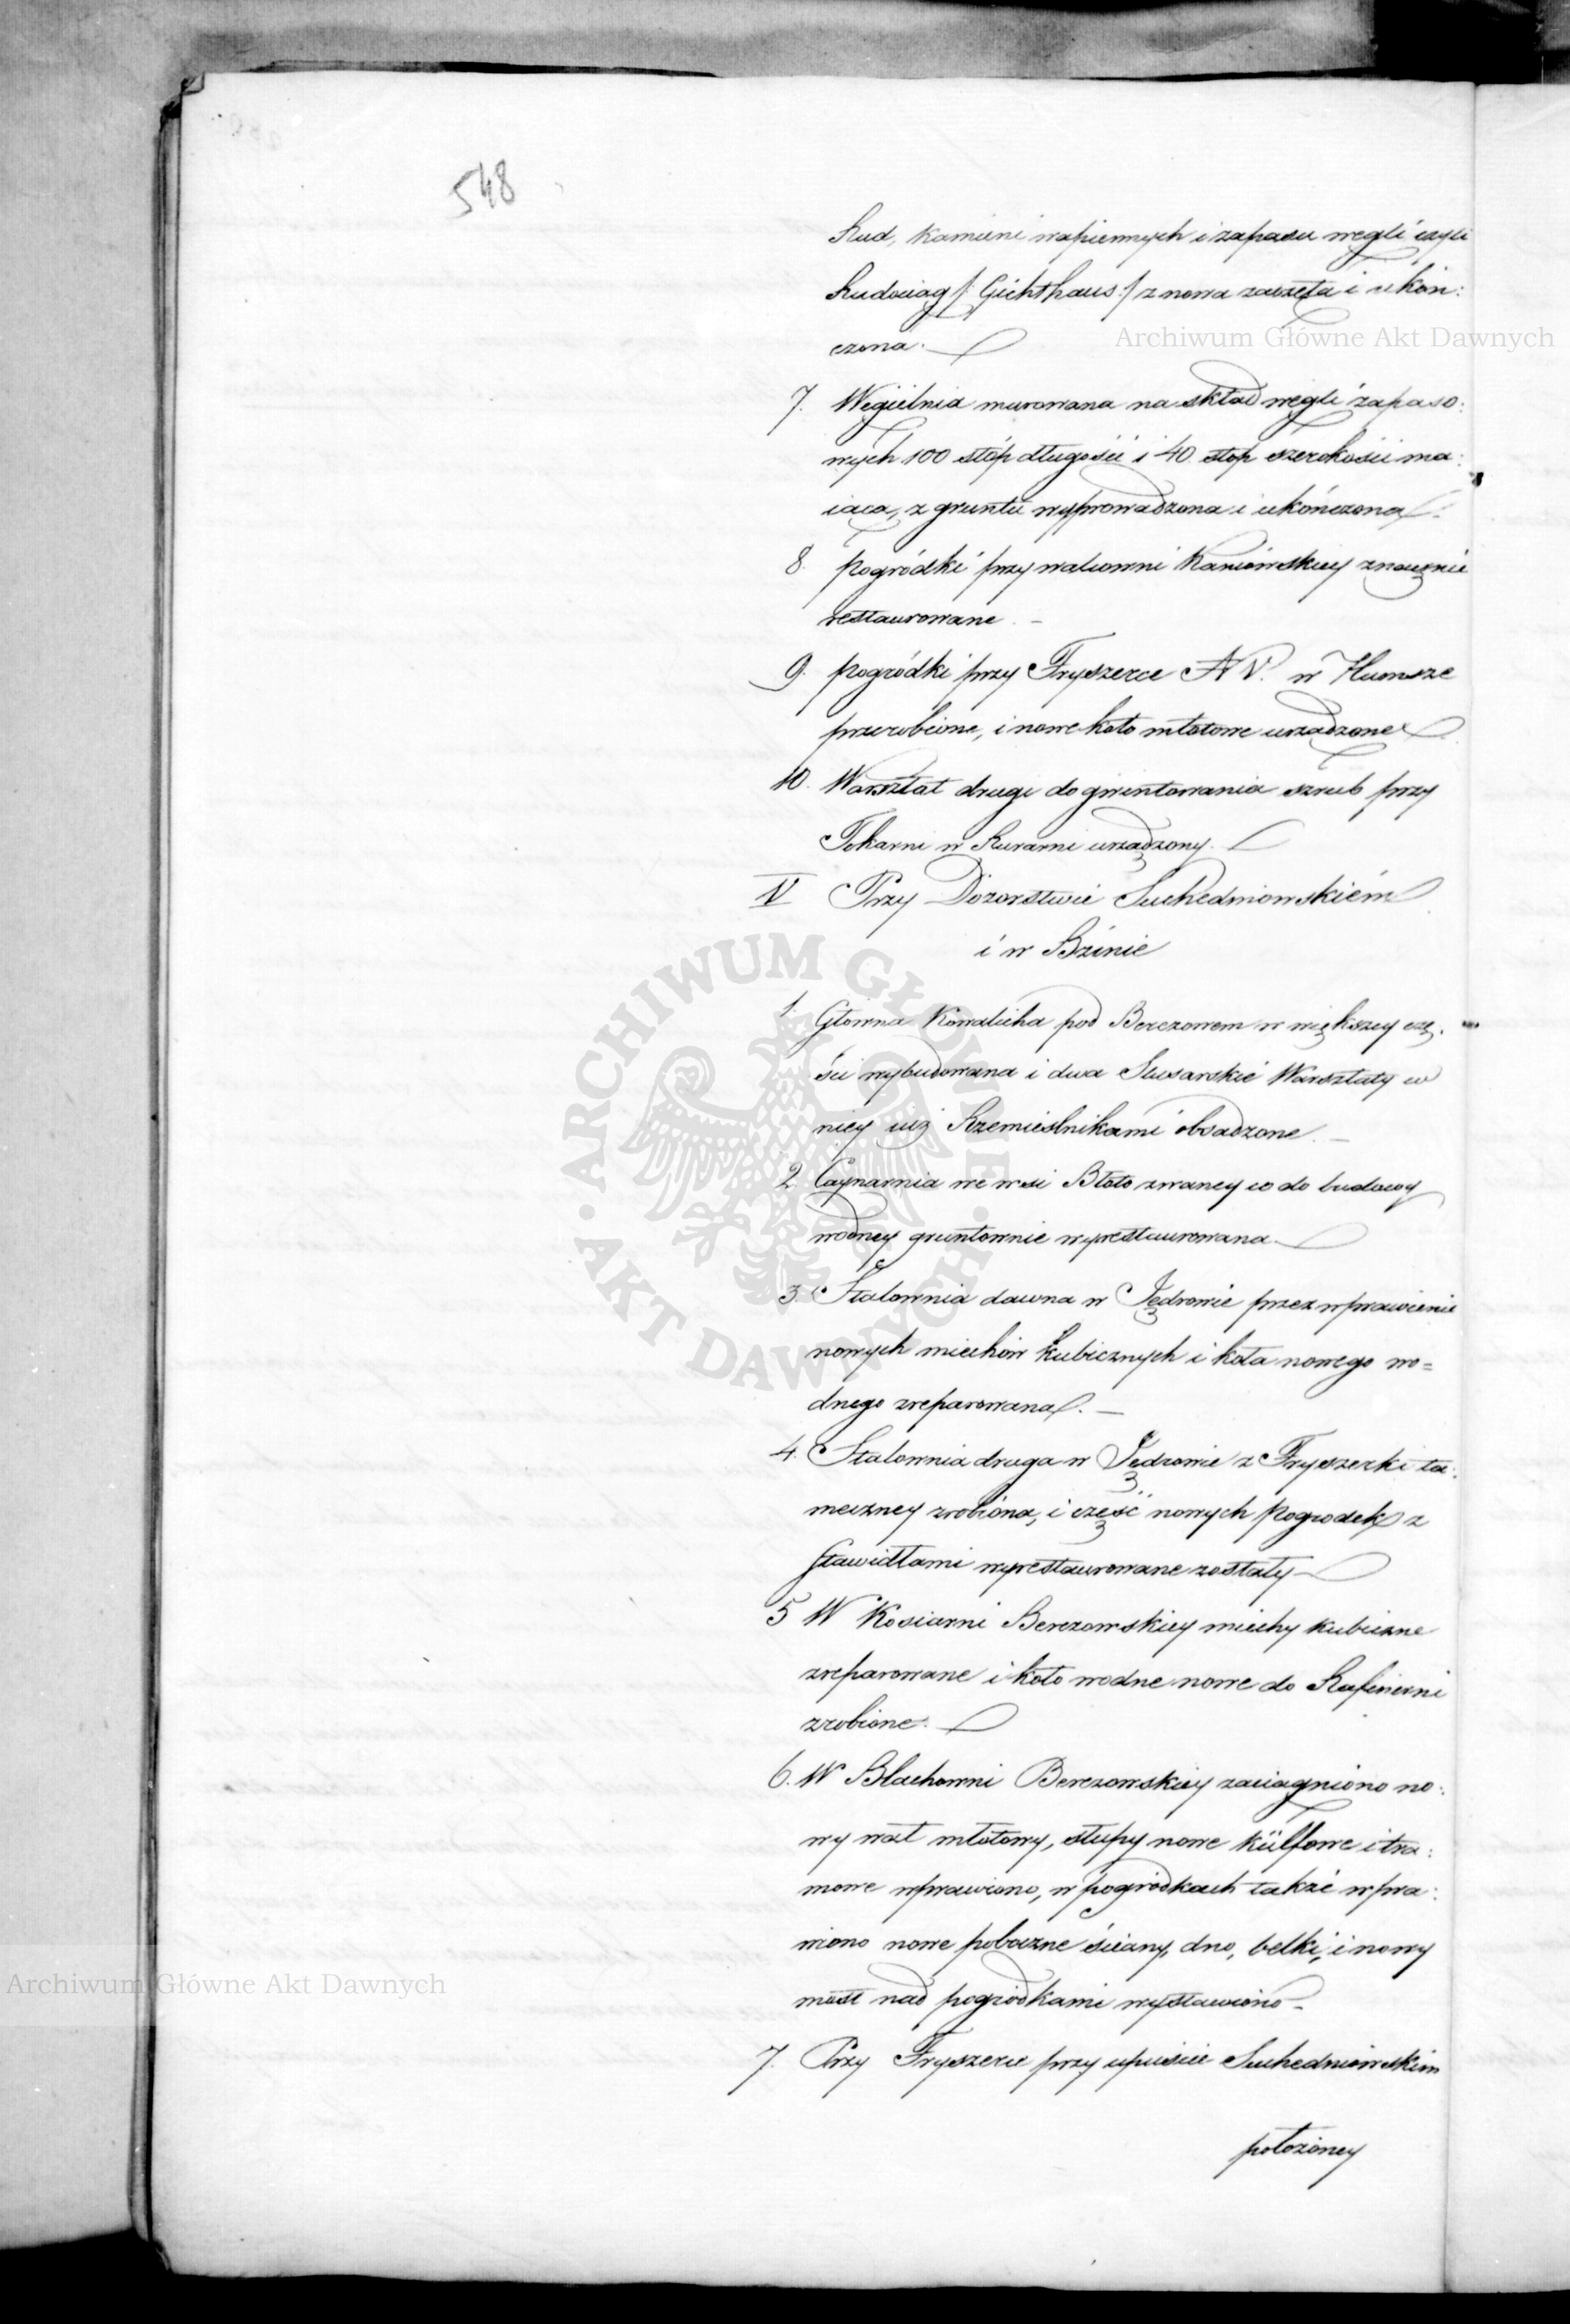 548
Rud, kamieni wapiennych i zapasu węgli czyli
Rudociąg /: Gichthaus :/ z nowa zaczęta i ukoń:
czona.
7. Węgielnia murowana na skład węgli zapaso:
wych 100 stóp długości i 40 stóp szerokości ma:
iąca, z gruntu wyprowadzona i ukończona.
8. pogródki przy walcowni Kaniowskiey znacznie
restaurowane. —
9. pogródki przy Fryszerce N V. w Humrze
przerobione, i nowe koło młotowe urządzone
10. Warsztat drugi do gwintowania szrub przy
Tokarni w Rurarni urządzony.
V Przy Dozorstwie Suchedniowskiém
i w Bzinie
1. Główna Kowalicha pod Berezowem w większey czę:
ści wybudowana i dwa Slusarskie Warsztaty w
niey iuż Rzemieslnikami obsadzone. —
2. Caynarnia we wsi Błoto zwaney co do budowy
wodney gruntownie wyrestaurowana
3. Stalownia dawna w Jędrowie przez wprawienie
nowych miechów kubicznych i koła nowego wo=
dnego zreparowana. —
4. Stalownia druga w Jędrowie z Fryszerki ta:
meczney zrobiona, i część nowych pogrodek z
stawidłami wyrestaurowane zostały
5 W Kosiarni Berezowskiey miechy kubiczne
zreparowane i koło wodne nowe do Rafinerni
zrobione.
6. W Blachowni Berezowskiey zaciągniono no:
wy wał młotowy, słupy nowe külfowe i tra:
mowe wprawiono, w pogródkach także wpra:
wiono nowe poboczne ściany, dno, belki, i nowy
most nad pogródkami wystawiono
7. Przy Fryszerce przy upuście Suchedniowskim
położoney
Archiwum Główne Akt Dawnych
ARCHIWUM GŁÓWNE • AKT DAWNYCH •
Archiwum Główne Akt Dawnych